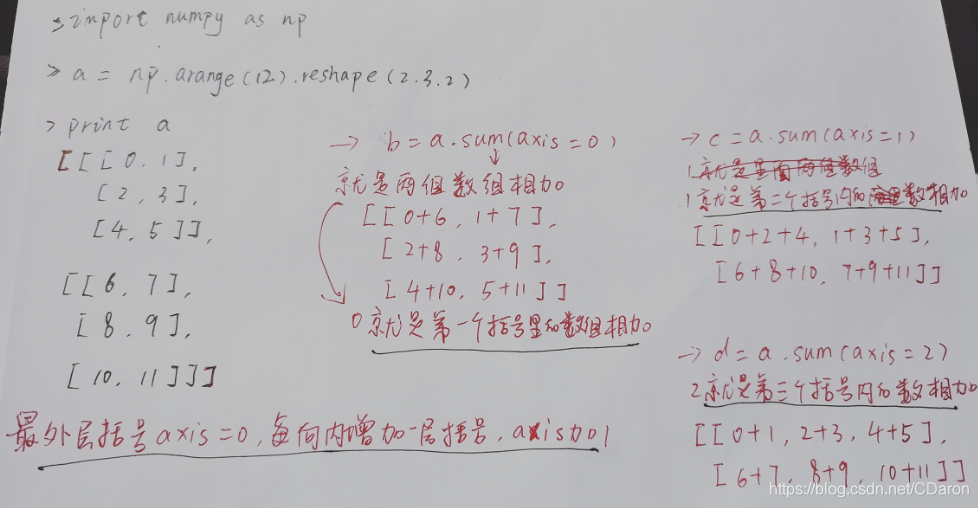 >import numpy as np
> a = np.arange(12).reshape(2.3.2)
> print a
[[[0.1],
[2,3],
[4,5]],
[[6,7],
[8,9],
[10,11]]]
→ b=a.sum(axis=0)
就是两组数组相加
[[0+6,1+7],
[2+8,3+9],
[4+10,5+11]]
0 就是第一个括号里的数组相加
→ c=a.sum(axis=1)
1.就是里面两组数组
1 就是第二个括号内的数相加
[[0+2+4,1+3+5],
[6+8+10,7+9+11]]
→ d=a.sum(axis=2)
2 就是第三个括号内的数相加
[[0+1,2+3,4+5],
[6+7,8+9,10+11]]
最外层括号axis=0,每向内增加一层括号,axis加1
https://blog.csdn.net/CDaron